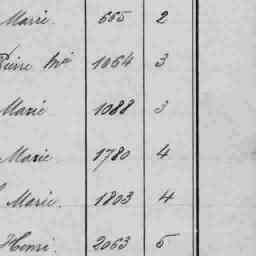 Marie. 665 2
Pierre Mie 1064 3
Marie 1088 3
Marie 1780 4
Marie. 1803 4
Henri. 2063 5